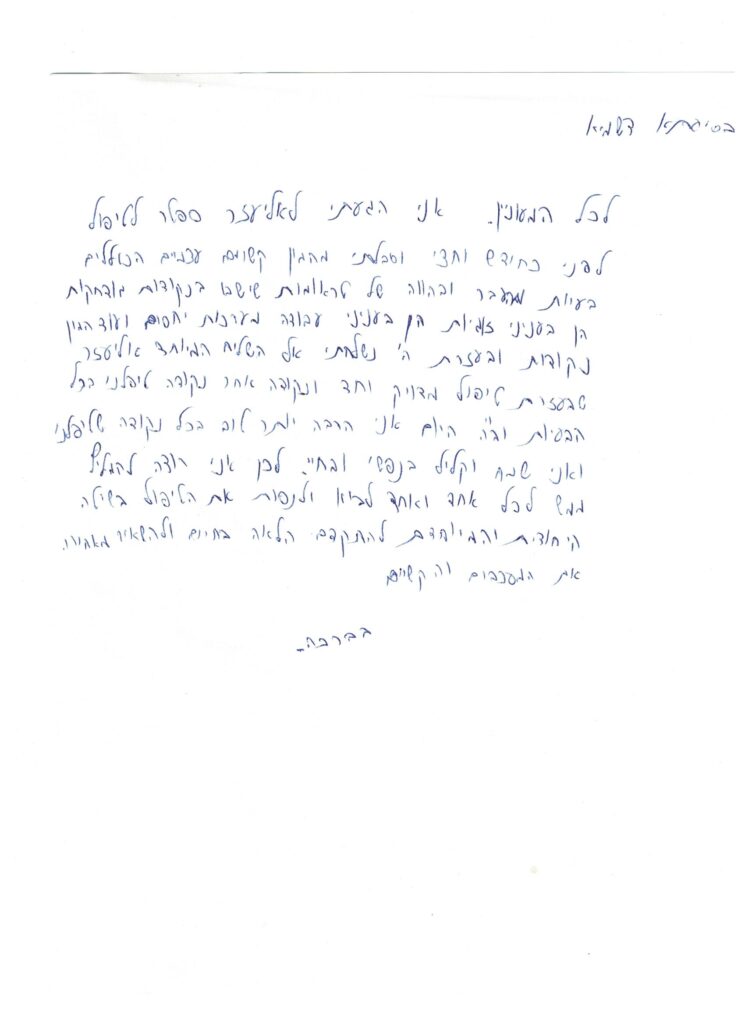 בסיעתא דשמיא
לכל המעונין. אני הגעתי לאליעזר ספטר לטיפול
לפני כחודש וחצי וסבלתי מהמון קשיים עצמיים הכוללים
בעיות מהעבר ובהווה של טראומות שישבו בנקודות מודחקות
הן בעניני זוגיות הן בעניני עבודה מערכות יחסים ועוד המון
נקודות ובעזרת ה' נשלחתי אל השליח המיוחד אליעזר
שבעזרת טיפול מדויק וחד ונקודה אחר נקודה טיפלני בכל
הבעיות וב"ה היום אני הרבה יותר טוב בכל נקודה שטיפלני
ואני שמח וקליל בנפשי ובחיי. לכן אני רוצה להמליץ
ממש לכל אחד ואחד לבוא ולנסות את הטיפול בשיטה
היחודית והמיוחדת להתקדם הלאה בחיים ולהשאיר מאחור.
את המעכבים והקשיים
בברכה.